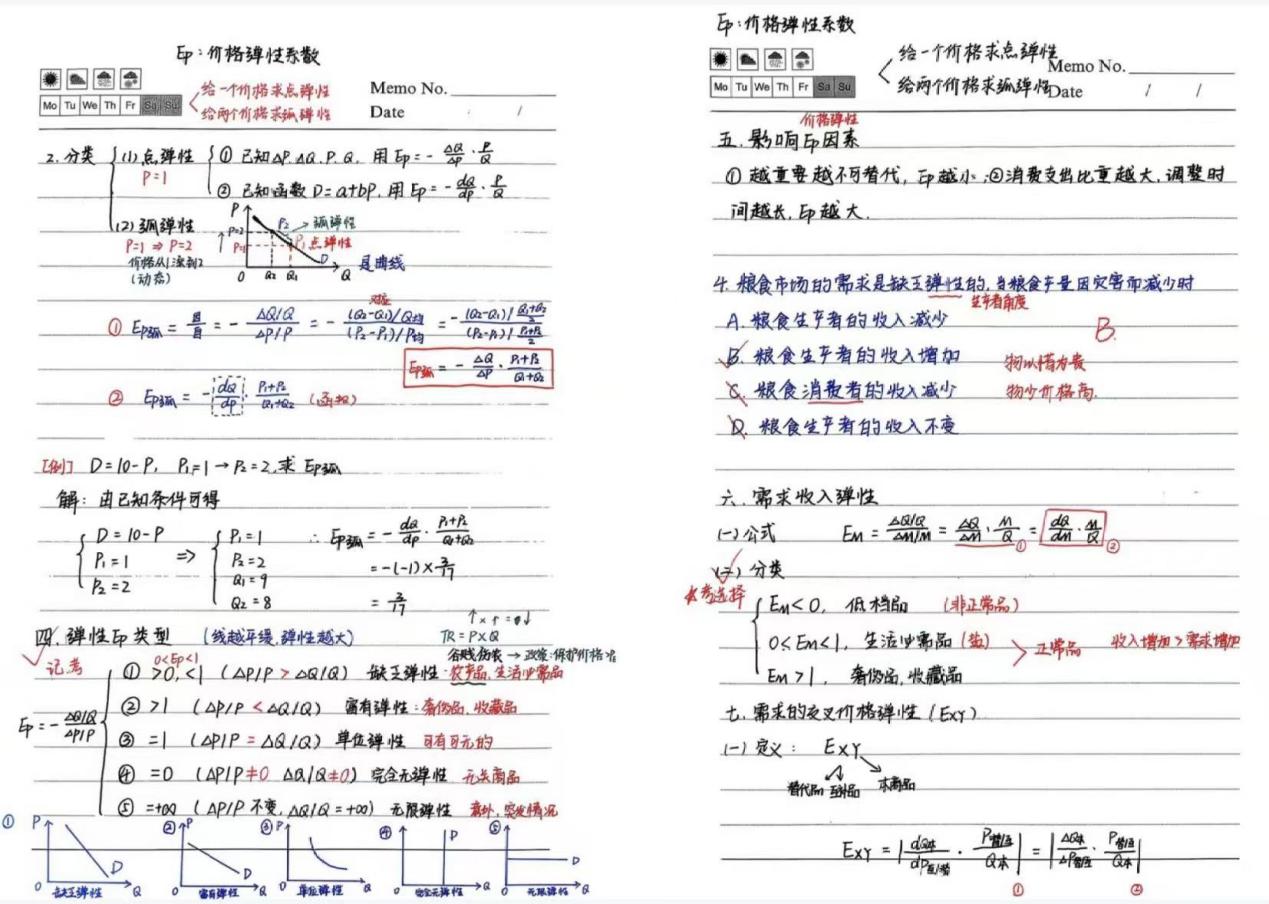 Ep：价格弹性系数
给一个价格求点弹性
给两个价格求弧弹性
Mo Tu We Th Fr Sa Su
Memo No.
Date / /
2. 分类
(1) 点弹性
P=1
① 已知ΔP.ΔQ.P.Q, 用 Ep = - ΔQ/ΔP · P/Q
② 已知函数 D=a+bP, 用 Ep = - dQ/dP · P/Q
(2) 弧弹性
P=1 ⇒ P=2
价格从1涨到2
(动态)
P
P=2
P=1
P2
→弧弹性
P1 点弹性
D
0 Q2 Q1 Q
是曲线
① Ep弧 = = - (ΔQ/Q)/(ΔP/P) = - ((Q2-Q1)/Q均)/((P2-P1)/P均) = - ((Q2-Q1)/((Q1+Q2)/2))/((P2-P1)/((P1+P2)/2))
Ep弧 = - ΔQ/ΔP · (P1+P2)/(Q1+Q2)
② Ep弧 = - dQ/dP · (P1+P2)/(Q1+Q2) (函数)
[例] D=10-P, P1=1→P2=2, 求 Ep弧
解：由已知条件可得
D=10-P
P1=1
P2=2
⇒
P1=1
P2=2
Q1=9
Q2=8
∴ Ep弧 = - dQ/dP · (P1+P2)/(Q1+Q2)
= -(-1)×3/17
= 3/17
四. 弹性Ep类型 (线越平缓, 弹性越大)
TR=P×Q
谷贱伤农 → 政策:保护价格
记考
0<Ep<1
Ep = - (ΔQ/Q)/(ΔP/P)
① >0, <1 (ΔP/P > ΔQ/Q) 缺乏弹性: 农产品, 生活必需品
② >1 (ΔP/P < ΔQ/Q) 富有弹性: 奢侈品, 收藏品
③ =1 (ΔP/P = ΔQ/Q) 单位弹性 可有可无的
④ =0 (ΔP/P≠0 ΔQ/Q=0) 完全无弹性 无关商品
⑤ =+∞ (ΔP/P 不变, ΔQ/Q=+∞) 无限弹性 意外, 突发情况
① P D 0 Q 缺乏弹性
② P D 0 Q 富有弹性
③ P 0 Q 单位弹性
④ P D 0 Q 完全无弹性
⑤ P D 0 Q 无限弹性
Ep：价格弹性系数
给一个价格求点弹性
给两个价格求弧弹性
Mo Tu We Th Fr Sa Su
Memo No.
Date / /
价格弹性
五. 影响Ep因素
① 越重要越不可替代, Ep越小；②消费支出比重越大, 调整时
间越长, Ep越大.
4. 粮食市场的需求是缺乏弹性的, 当粮食产量因灾害而减少时
生产者角度
A. 粮食生产者的收入减少
B.
B. 粮食生产者的收入增加
物以稀为贵
C. 粮食消费者的收入减少
物少价格高.
D. 粮食生产者的收入不变
六. 需求收入弹性
(一) 公式 Em = (ΔQ/Q)/(ΔM/M) = ΔQ/ΔM · M/Q ① = dQ/dM · M/Q ②
(二) 分类
★考选择
Em<0, 低档品 (非正常品)
0≤Em<1, 生活必需品 (盐)
正常品
收入增加>需求增加
Em>1, 奢侈品, 收藏品
七. 需求的交叉价格弹性 (Exy)
(一) 定义： Exy
替代品 互补品 本商品
Exy = |dQ本/dP互/替 · P替/互/Q本| = |ΔQ本/ΔP替/互 · P替/互/Q本|
① ②